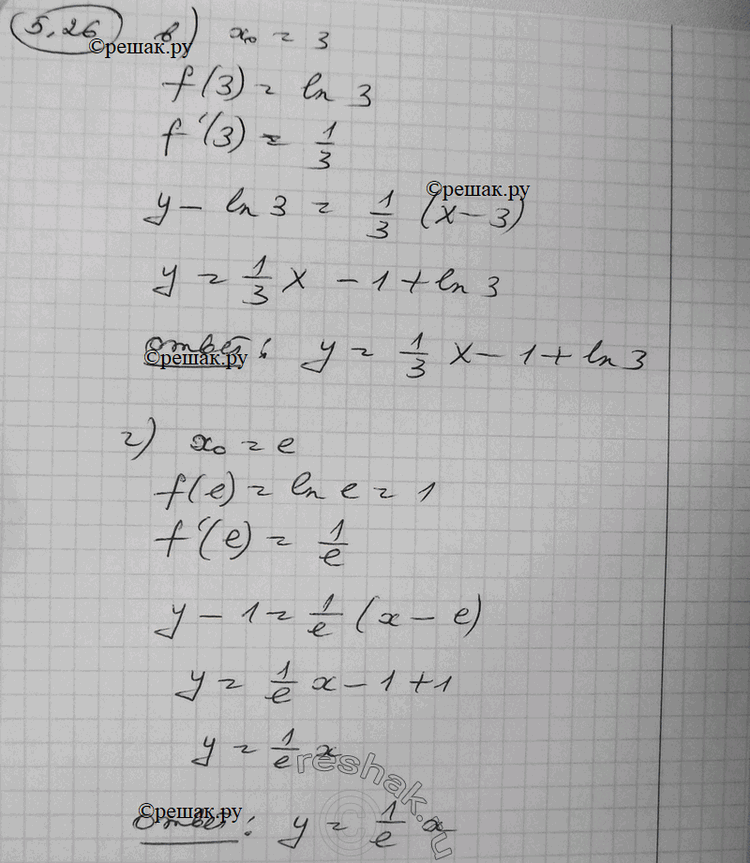 5.26 в) x₀ = 3
©решак.ру
f(3) = ln 3
f'(3) = 1/3
©решак.ру
y - ln 3 = 1/3 (x - 3)
y = 1/3 x - 1 + ln 3
Ответ: y = 1/3 x - 1 + ln 3
©решак.ру
г) x₀ = e
f(e) = ln e = 1
f'(e) = 1/e
y - 1 = 1/e (x - e)
y = 1/e x - 1 + 1
y = 1/e x
reshak.ru
©решак.ру
Ответ: y = 1/e x